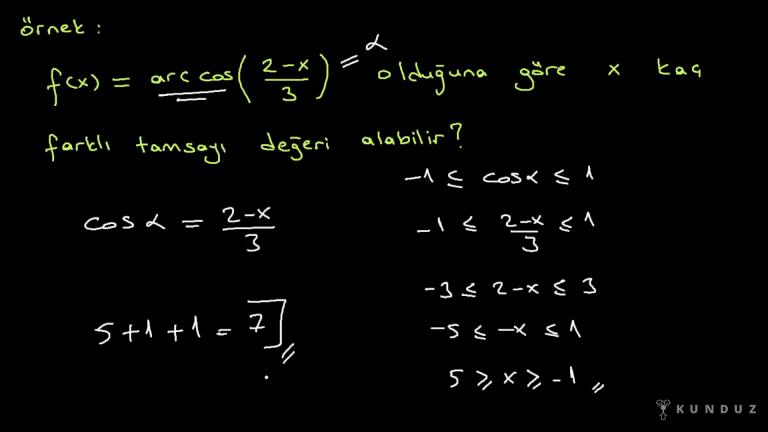 örnek :
f(x) = arc cos(2-x/3) = α olduğuna göre x kaç
farklı tamsayı değeri alabilir?
-1 ≤ cosα ≤ 1
cos α = 2-x/3
-1 ≤ 2-x/3 ≤ 1
-3 ≤ 2-x ≤ 3
5+1+1 = 7
-5 ≤ -x ≤ 1
5 ≥ x ≥ -1
KUNDUZ